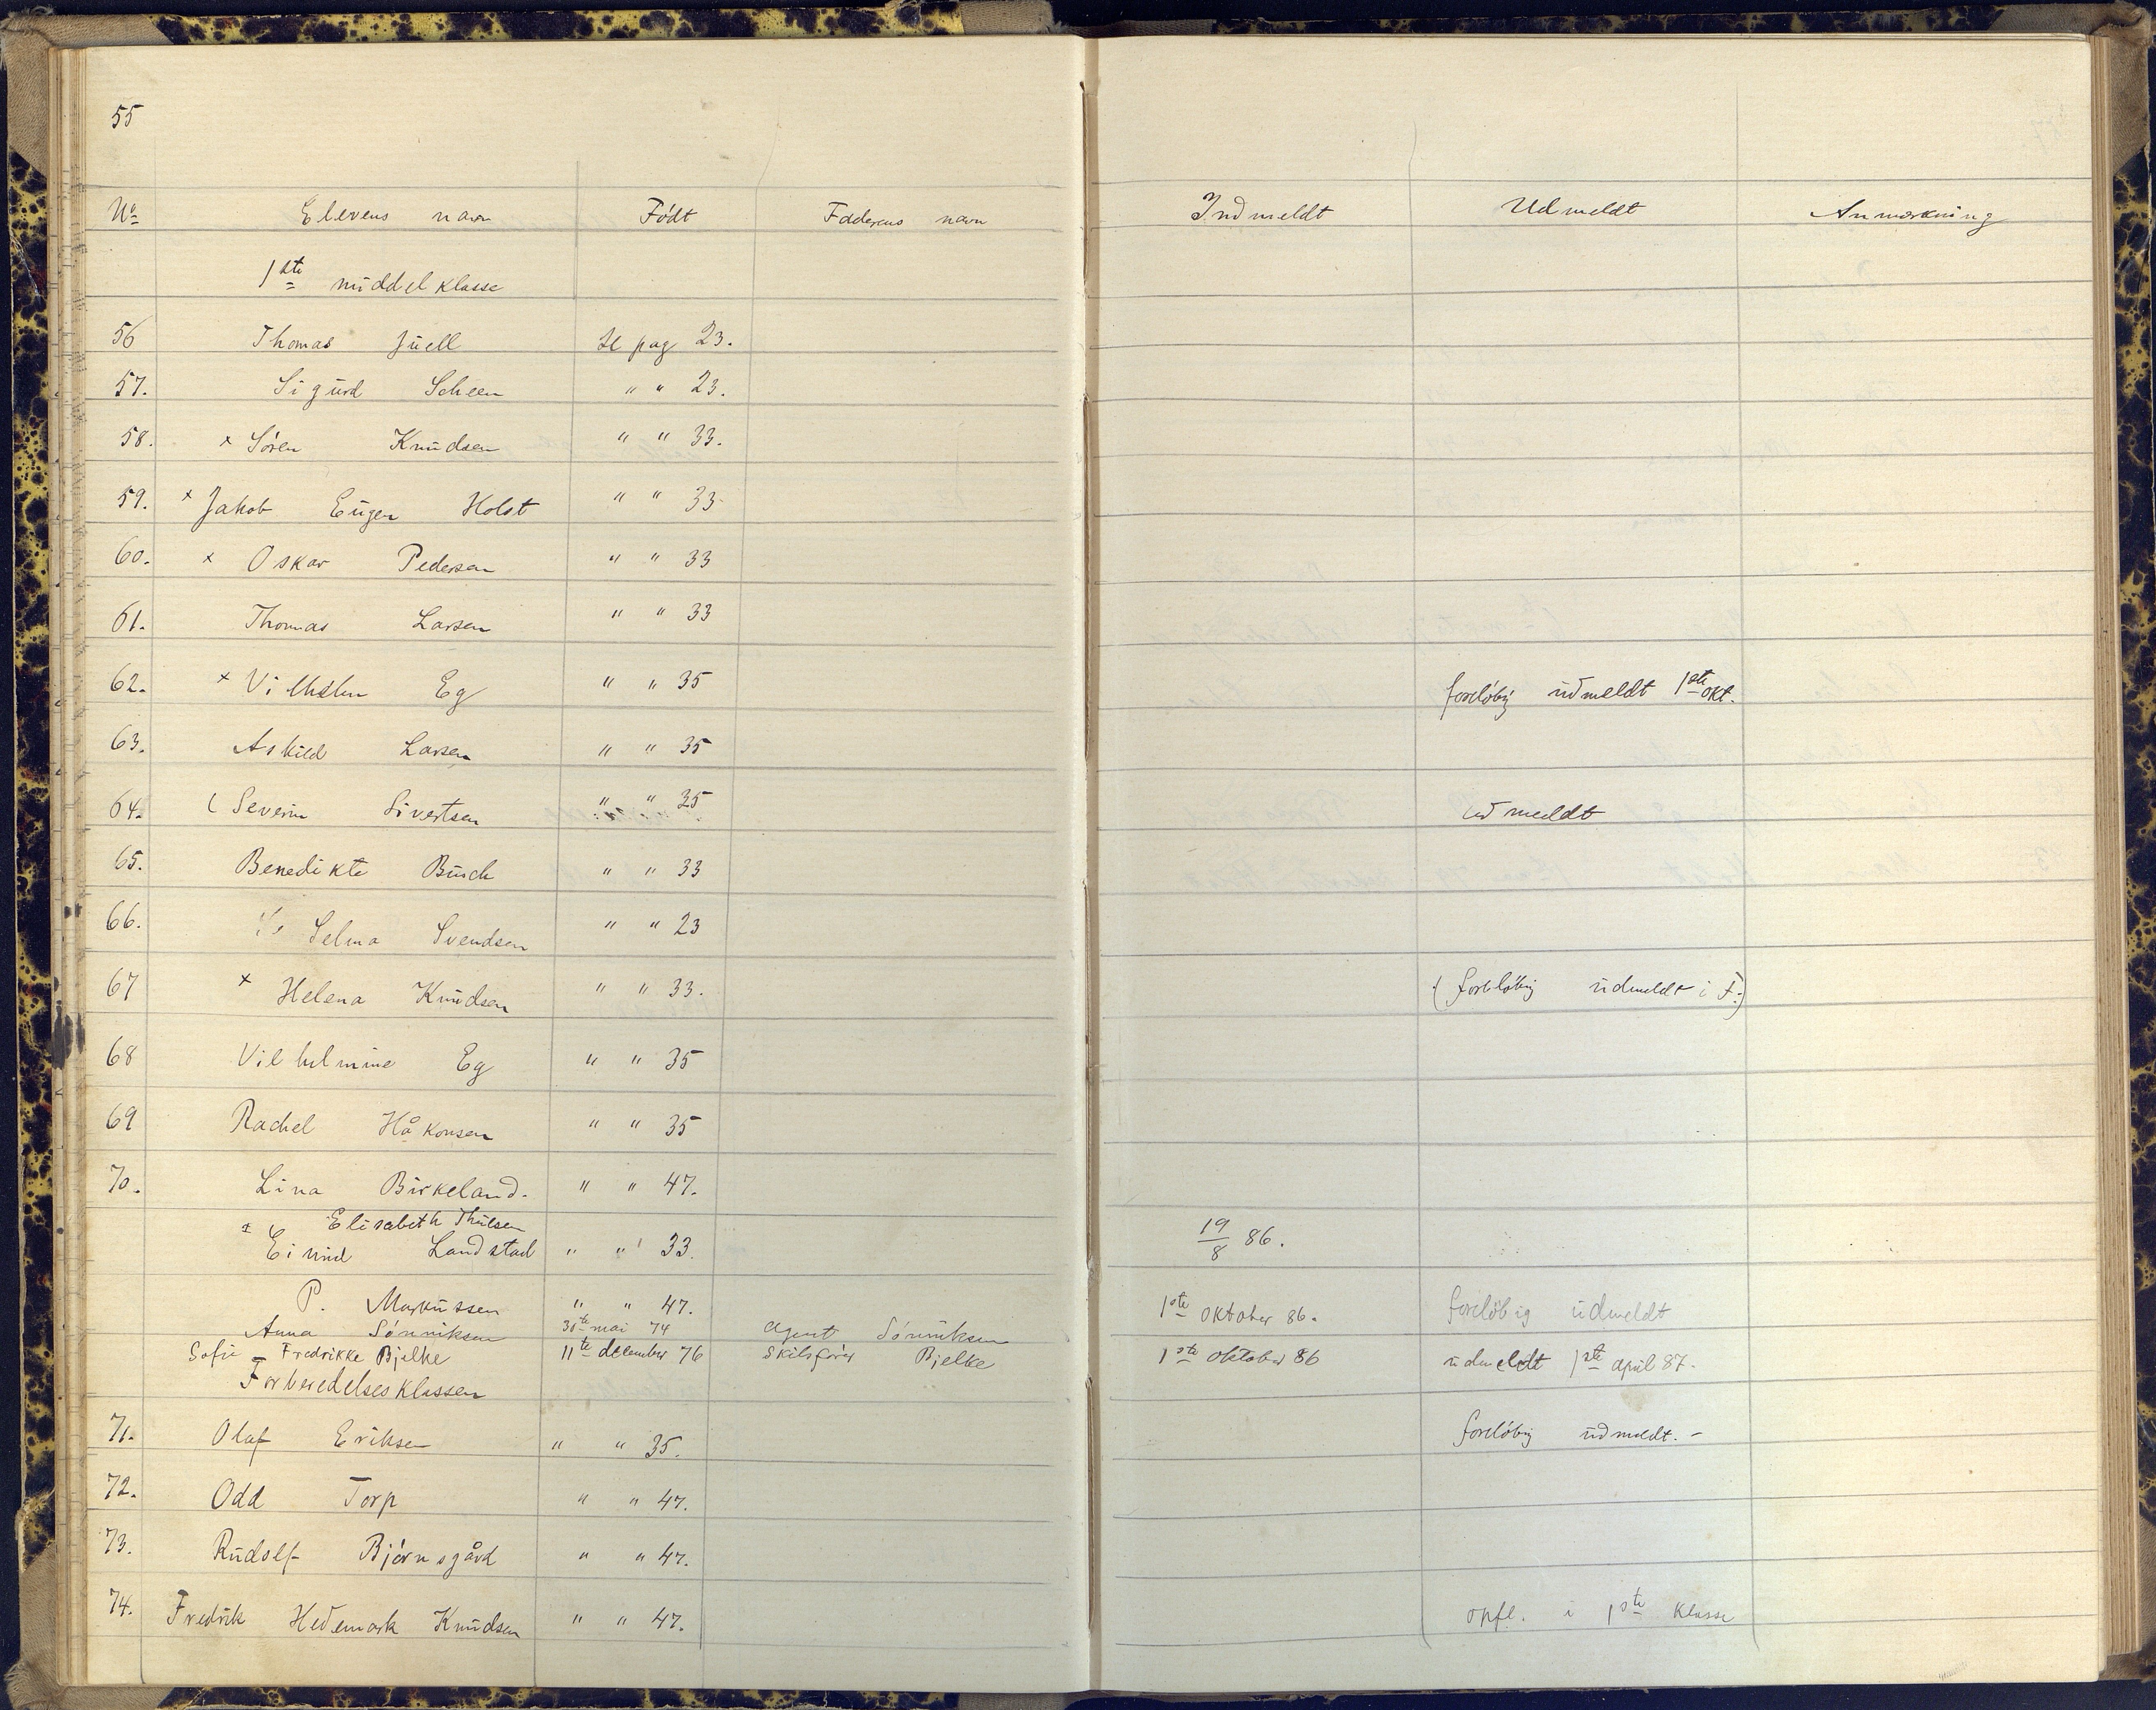 55
No Elevens navn Født Faderens navn Indmeldt Udmeldt Anmærkning
1ste middelklasse
56 Thomas Juell Se pag 23.
57. Sigurd Scheen " " 23.
58. x Sören Knudsen " " 33.
59. x Jakob Eugen Holst " " 33
60. x Oskar Pedersen " " 33
61. Thomas Larsen " " 33
62. x Vilhelm Eg " " 35 foreløbig udmeldt 1ste okt.
63. Askild Larsen " " 35
64. ( Severin Sivertsen " " 35 udmeldt
65. Benedikte Busch " " 33
66. Selma Svendsen " " 23
67 x Helena Knudsen " " 33. (foreløbig udmeldt i F.)
68 Vilhelmine Eg " " 35
69 Rachel Håkonsen " " 35
70. Lina Birkeland. " " 47.
Elisabeth Thulsen
x Eivind Landstad " " 33. 19/8 86.
P. Markussen " " 47. 1ste oktober 86. foreløbig udmeldt
Anna Sönniksen 30te mai 74 agent Sönniksen
Sofie Fredrikke Bjelke 11te december 76 Skibsfører Bjelke 1ste oktober 86 udmeldt 1ste april 87.
Forberedelsesklassen
71. Olaf Eriksen " " 35. foreløbig udmeldt. -
72. Odd Torp " " 47.
73. Rudolf Björnsgård " " 47.
74. Fredrik Hedemark Knudsen " " 47. opfl. i 1ste klasse